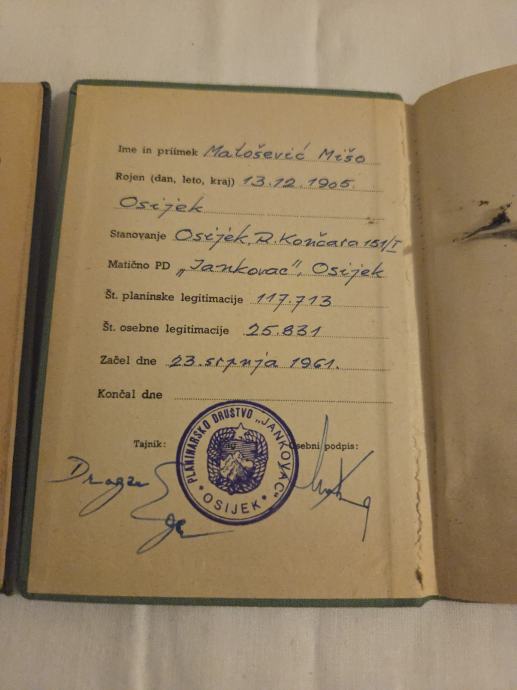 Ime in priimek Matošević Mišo
Rojen (dan, leto, kraj) 13.12.1905.
Osijek
Stanovanje Osijek, R. Končara 151/I
Matično PD „Jankovac", Osijek
Št. planinske legitimacije 117.713
Št. osebne legitimacije 25.831
Začel dne 23. srpnja 1961.
Končal dne
Tajnik:
Osebni podpis:
PLANINARSKO DRUŠTVO „JANKOVAC"
OSIJEK